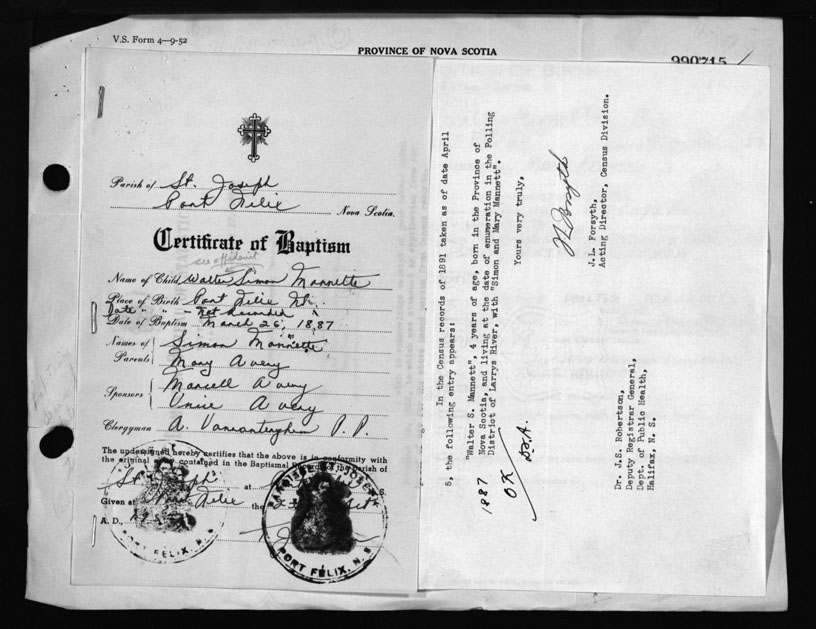 V.S. Form 4—9-52
PROVINCE OF NOVA SCOTIA
990715
Parish of St. Joseph
Port Felix Nova Scotia.
Certificate of Baptism
see affidavit
Name of Child Walter Simon Mannette
Place of Birth Port Felix N.S.
Date " " - Not Recorded
Date of Baptism March 26, 1887
Names of Parents Simon Mannette
Mary Avery
Sponsors Marcell Avery
Avery
Clergyman A. P. P.
The undersigned hereby certifies that the above is in conformity with
the original entry contained in the Baptismal Records of the parish of
St. Joseph at
Given at Port Felix the
A. D.,
PORT FELIX, N. S.
PORT FELIX, N. S.
In the Census records of 1891 taken as of date April
5, the following entry appears:
"Walter S. Mannett", 4 years of age, born in the Province of
Nova Scotia, and living at the date of enumeration in the Polling
District of Larrys River, with "Simon and Mary Mannett".
Yours very truly,
J.L. Forsyth
J.L. Forsyth,
Acting Director, Census Division.
1887
OK
Dr. J.S. Robertson,
Deputy Registrar General,
Dept. of Public Health,
Halifax, N. S.